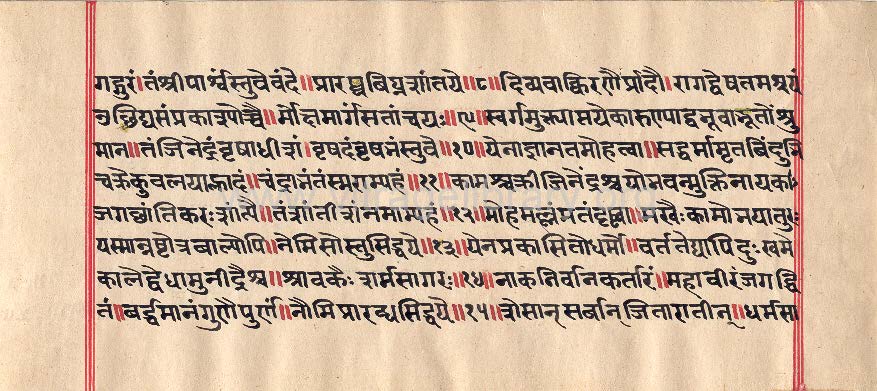 गद्गुरुं।तंश्रीपार्श्वस्तुवेवंदे॥प्रारब्धविघ्नशांतये॥८॥दिव्यवाक्किरणैर्प्रादौ।रागद्वेषतमश्चयं
उछिद्यसंप्रकाश्योच्चै॥र्मोक्षमार्गंसतांचयः॥९॥स्वर्गमुक्त्याप्तये
मान॥तंजिनेंद्रंवृषाधीशं।वृषदंवृषभंस्तुवे॥१०॥येनाज्ञानतमोहत्वा॥सद्धर्मामृतबिंदुभि
चक्रेकुवलयाह्लादं॥चंद्राभंतंस्मराम्यहं॥११॥कामश्चक्रीजिनेंद्रश्चयोभवन्मुक्तिनायकः
जगछांतिकरःशांत्यै॥तंशांतीशंनमाम्यहं॥१२॥मोहमल्लंव्रतंदृष्ट्वा॥भयातुरः
यस्मान्नष्टोत्रबाल्येपि॥नेमिसोस्तुसिद्धये॥१३॥येनप्रकासितोधर्मो॥वर्त्ततेद्यापिदुःखमे
कालेद्वेधामुनीद्रैश्च॥श्रावकैःशर्मसागरः॥१४॥नाकनिर्वानकर्तारं॥महावीरंजगद्धि
तं॥वर्द्धमानंगुणैपुर्णं॥नौमिप्रारब्धसिद्धये॥१५॥शेसान्सर्वान्जितारातीन्॥धर्मसा